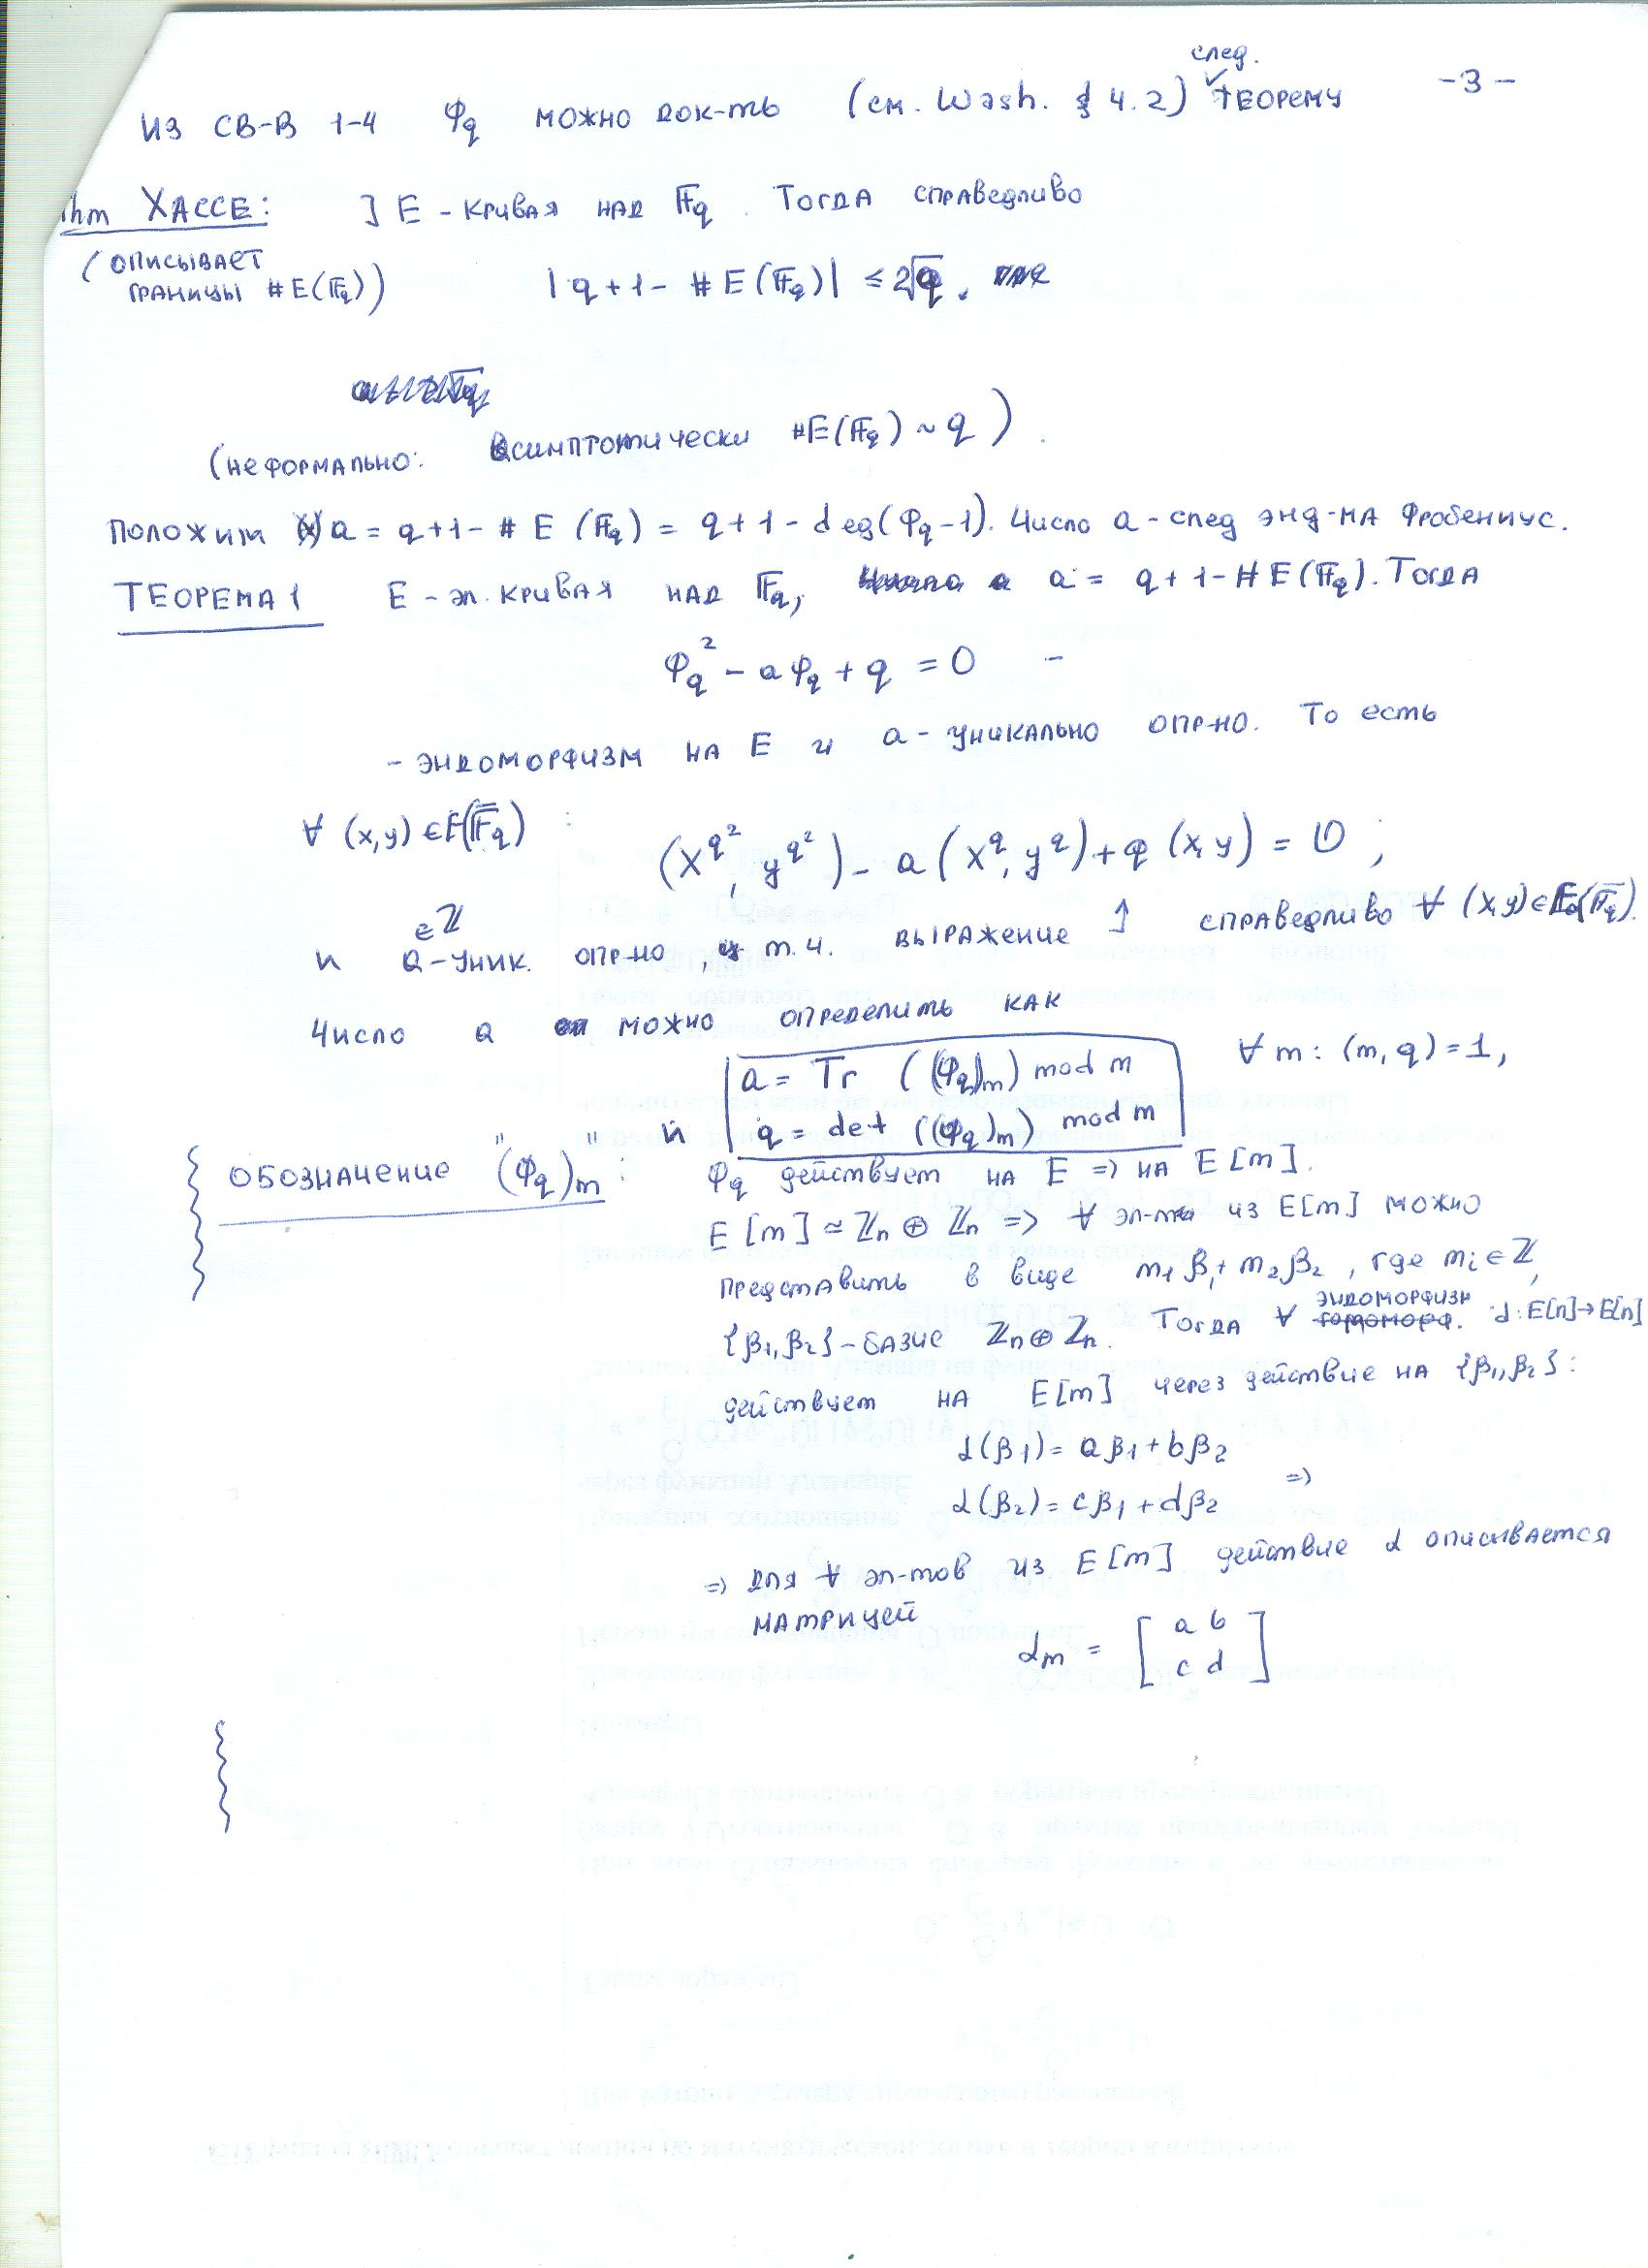 след.
-3-
из св-в 1-4 φq можно док-ть (см. Wash. § 4.2) теорему
Thm Хассе: ] E - кривая над 𝔽q. Тогда справедливо
(описывает
границы #E(𝔽q)) |q+1- #E(𝔽q)| ≤ 2√q.
(неформально: асимптотически #E(𝔽q) ~ q).
Положим a = q+1- # E (𝔽q) = q+1- deg(φq-1). Число a - след энд-ма Фробениус.
Теорема 1 E - эл. кривая над 𝔽q, a = q+1-#E(𝔽q). Тогда
φq² - aφq + q = 0 -
- эндоморфизм на E и a - уникально опр-но. То есть
∀ (x,y) ∈ E(𝔽̅q) : (x^q², y^q²) - a(x^q, y^q) + q(x,y) = O ;
∈ℤ
и a-уник. опр-но, т.ч. выражение ↑ справедливо ∀ (x,y)∈E(𝔽̅q).
Число a можно определить как
a = Tr ((φq)m) mod m ∀ m: (m,q)=1,
и q = det ((φq)m) mod m
обозначение "(φq)m": φq действует на E => на E[m].
E[m] ≃ ℤn ⊕ ℤn => ∀ эл-та из E[m] можно
представить в виде m1β1+m2β2, где mi∈ℤ,
{β1,β2}-базис ℤn⊕ℤn. Тогда ∀ эндоморфизм α:E[n]→E[n]
действует на E[m] через действие на {β1,β2}:
α(β1)= aβ1+bβ2
α(β2)= cβ1+dβ2 =>
=> для ∀ эл-тов из E[m] действие α описывается
матрицей
αm = [ a b
c d ]